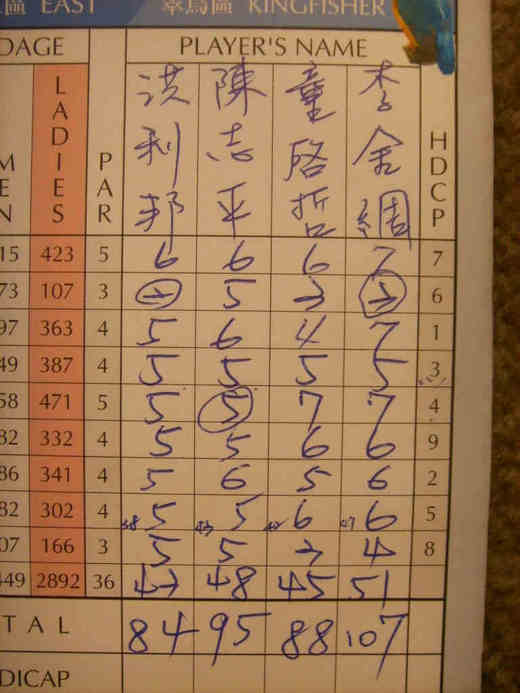 區 EAST 翠鳥區 KINGFISHER
DAGE PLAYER'S NAME
MEN LADIES PAR 洪利邦 陳志平 童啓哲 李金綢 HDCP
15 423 5 6 6 6 7 7
73 107 3 3 5 3 3 6
97 363 4 5 6 4 7 1
49 387 4 5 5 5 5 3
58 471 5 5 5 7 7 4
82 332 4 5 5 6 6 9
86 341 4 5 6 5 6 2
82 302 4 5 5 6 6 5
07 166 3 5 5 3 4 8
449 2892 36 43 48 45 51
TAL 84 95 88 107
DICAP